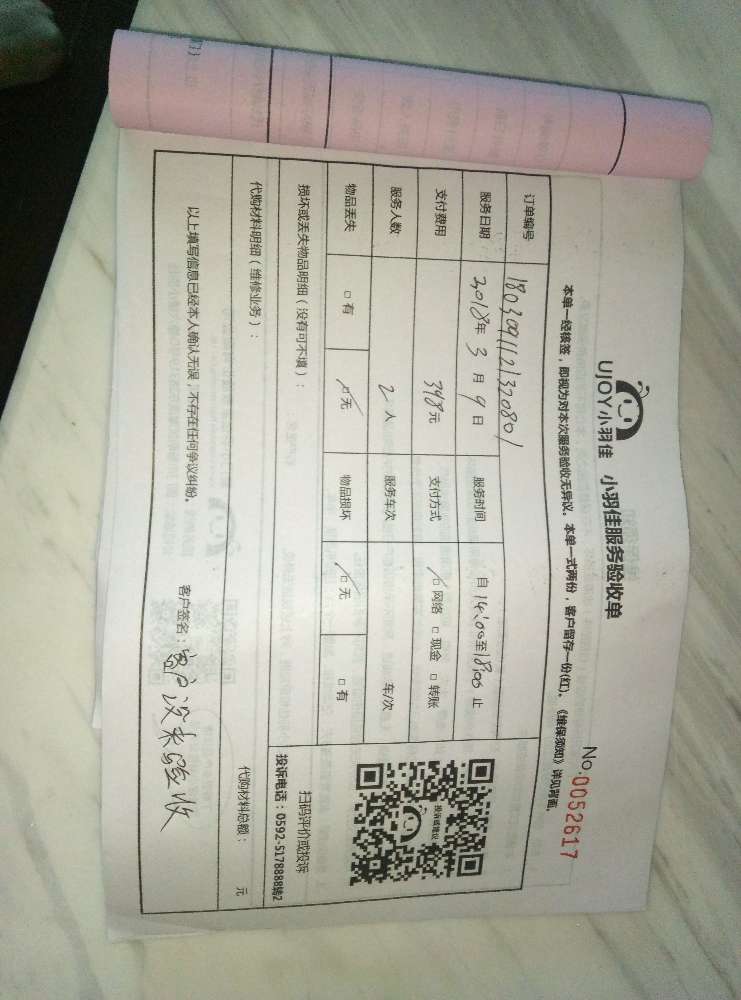 UJOY小羽佳 小羽佳服务验收单
No.0052617
本单一经核签，即视为对本次服务验收无异议。本单一式两份，客户留存一份(红)。《维保须知》详见背面。
订单编号 1803091121320801
服务日期 2018年 3 月 9 日 服务时间 自 14:00 至 18:00 止
支付费用 398元 支付方式 ☑网络 □现金 □转账
服务人数 2 人 服务车次 车/次
物品丢失 □有 ☑无 物品损坏 ☑无 □有
损坏或丢失物品明细（没有可不填）：
投诉或建议
扫码评价或投诉
投诉电话：0592-5178888转2
代购材料明细（维修业务）：
代购材料总额： 元
以上填写信息已经本人确认无误，不存在任何争议纠纷。
客户签名：客户没来验收